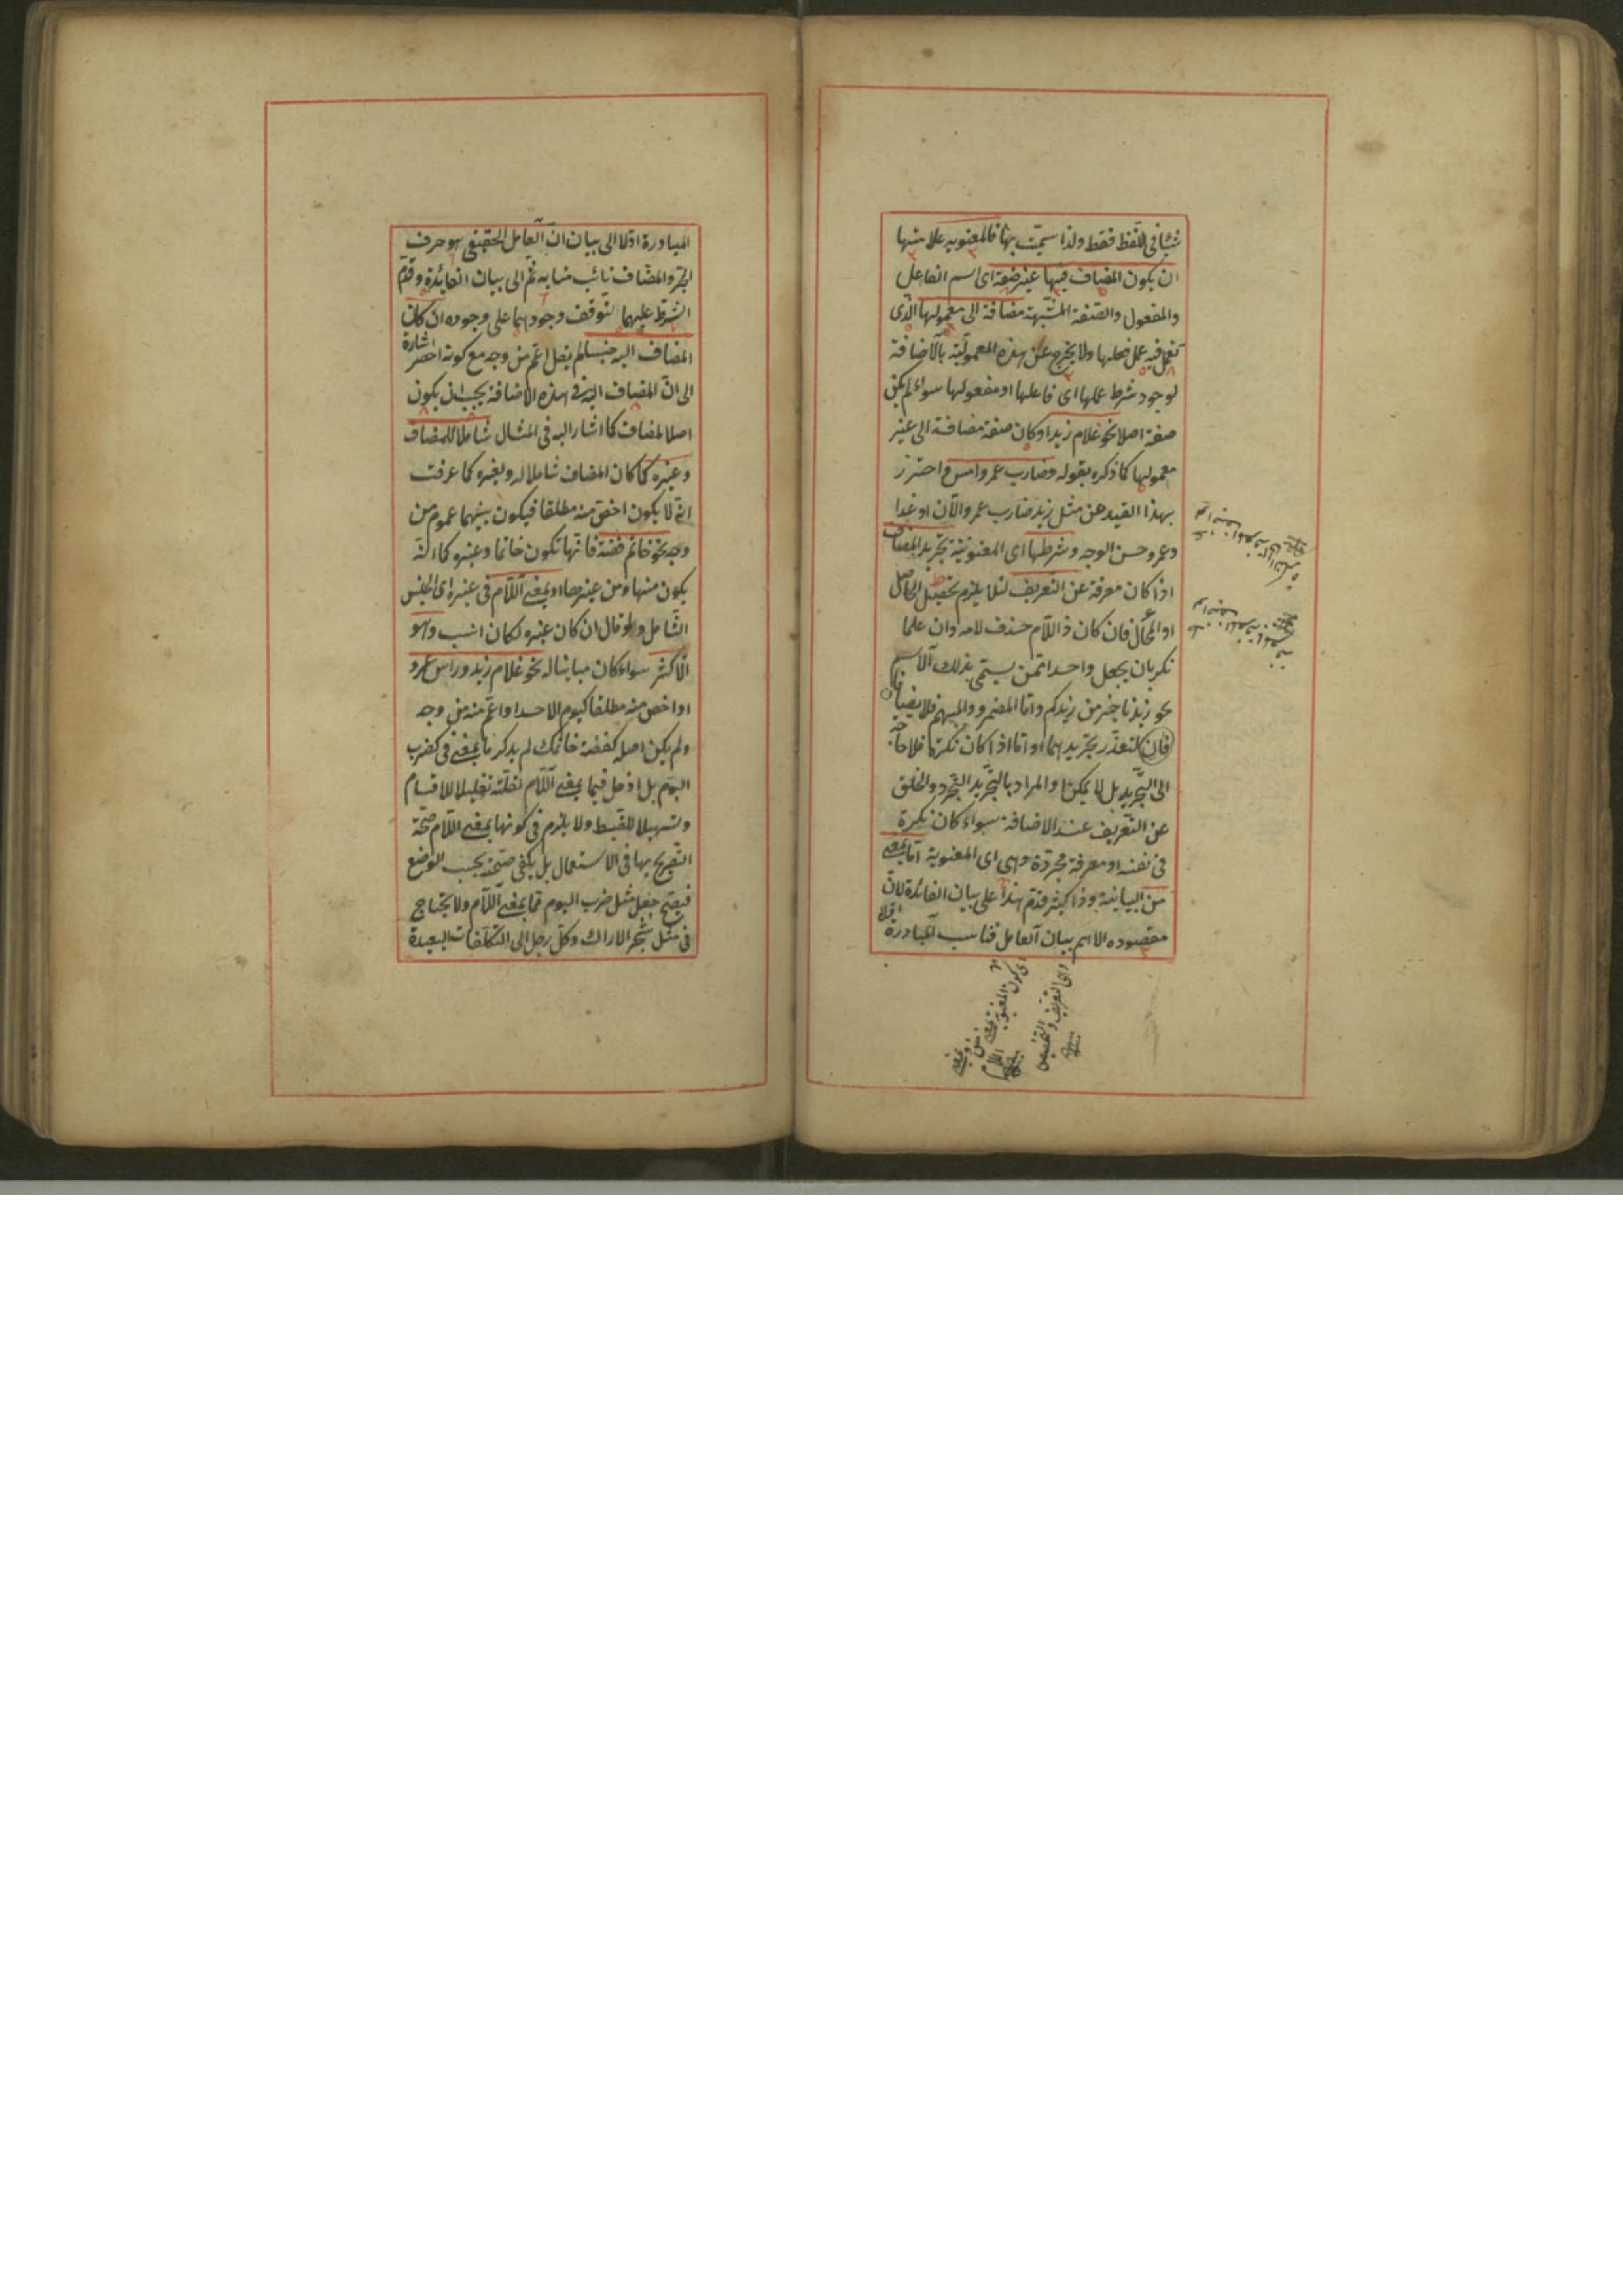 شيئا في اللفظ فقط ولذا سميت بها فالمعنوية علامتها
ان يكون المضاف فيها غير صفة اى اسم الفاعل
والمفعول والصفة المشبهة مضافة الى معمولها الذى
تعمل فيه عمل فعلها ولا يخرج عن هذه المعمولية بالاضافة
لوجود شرط عملها اى فاعلها او مفعولها سواء لم يكن
صفة اصلا نحو غلام زيد او كان صفة مضافة الى غير
معمولها كما ذكره بقوله وضارب عمرو امس واحترز
بهذا القيد عن مثل زيد ضارب عمرو الآن او غدا
وعمرو حسن الوجه وشرطها اى المعنوية تجريد المضاف
اذا كان معرفة عن التعريف لئلا يلزم تحصيل الحاصل
او المحال فان كان ذا اللام حذف لامه وان علما
نكر بان يجعل واحدا ممن يسمى بذلك الاسم
نحو زيدنا خير من زيدكم واما المضمر والمبهم فلا يضافان
لتعذر تجريدهما واما اذا كان نكرة فلا حاجة
الى التجريد بل لا يمكن والمراد بالتجريد التجرد والخلق
عن التعريف عند الاضافة سواء كان نكرة
فى نفسه او معرفة مجردة وهى اى المعنوية اما بمعنى
من البيانية وذا كثير قدم هذا على بيان الفائدة لان
مقصوده الاهم بيان العامل فناسب المبادرة اولا
اى التعريف والتخصيص
اى كون المعنوية بمعنى
من او بمعنى اللام
المبادرة اولا الى بيان ان العامل الحقيقى هو حرف
الجر والمضاف نائب منابه ثم الى بيان الفائدة وقدم
الشرط عليهما لتوقف وجودهما على وجوده ان كان
المضاف اليه جنسا لم يقل اعم من وجه مع كونه اخصر اشارة
الى ان المضاف اليه فى هذه الاضافة يجب ان يكون
اصلا للمضاف كما اشار اليه فى المثال شاملا للمضاف
وغيره كما كان المضاف شاملا له ولغيره كما عرفت
انه لا يكون اخص منه مطلقا فيكون بينهما عموم من
وجه نحو خاتم فضة فانها تكون خاتما وغيره كما انه
يكون منها ومن غيرها او بمعنى اللام فى غيره اى الجنس
الشامل ولو قال ان كان غيره لكان انسب وهو
الاكثر سواء كان مباينا له نحو غلام زيد وراس عمرو
او اخص منه مطلقا كيوم الاحد او اعم منه من وجه
ولم يكن اصله كفضة خاتمك لم يذكر ما بمعنى فى كضرب
اليوم بل ادخل فيما بمعنى اللام لقلته تقليلا للاقسام
وتسهيلا للضبط ولا يلزم فى كونها بمعنى اللام صحة
التصريح بها فى الاستعمال بل يكفى صحته بحسب الوضع
فيصح جعل مثل ضرب اليوم مما بمعنى اللام ولا يحتاج
فى مثل شجر الاراك وكل رجل الى التكلفات البعيدة